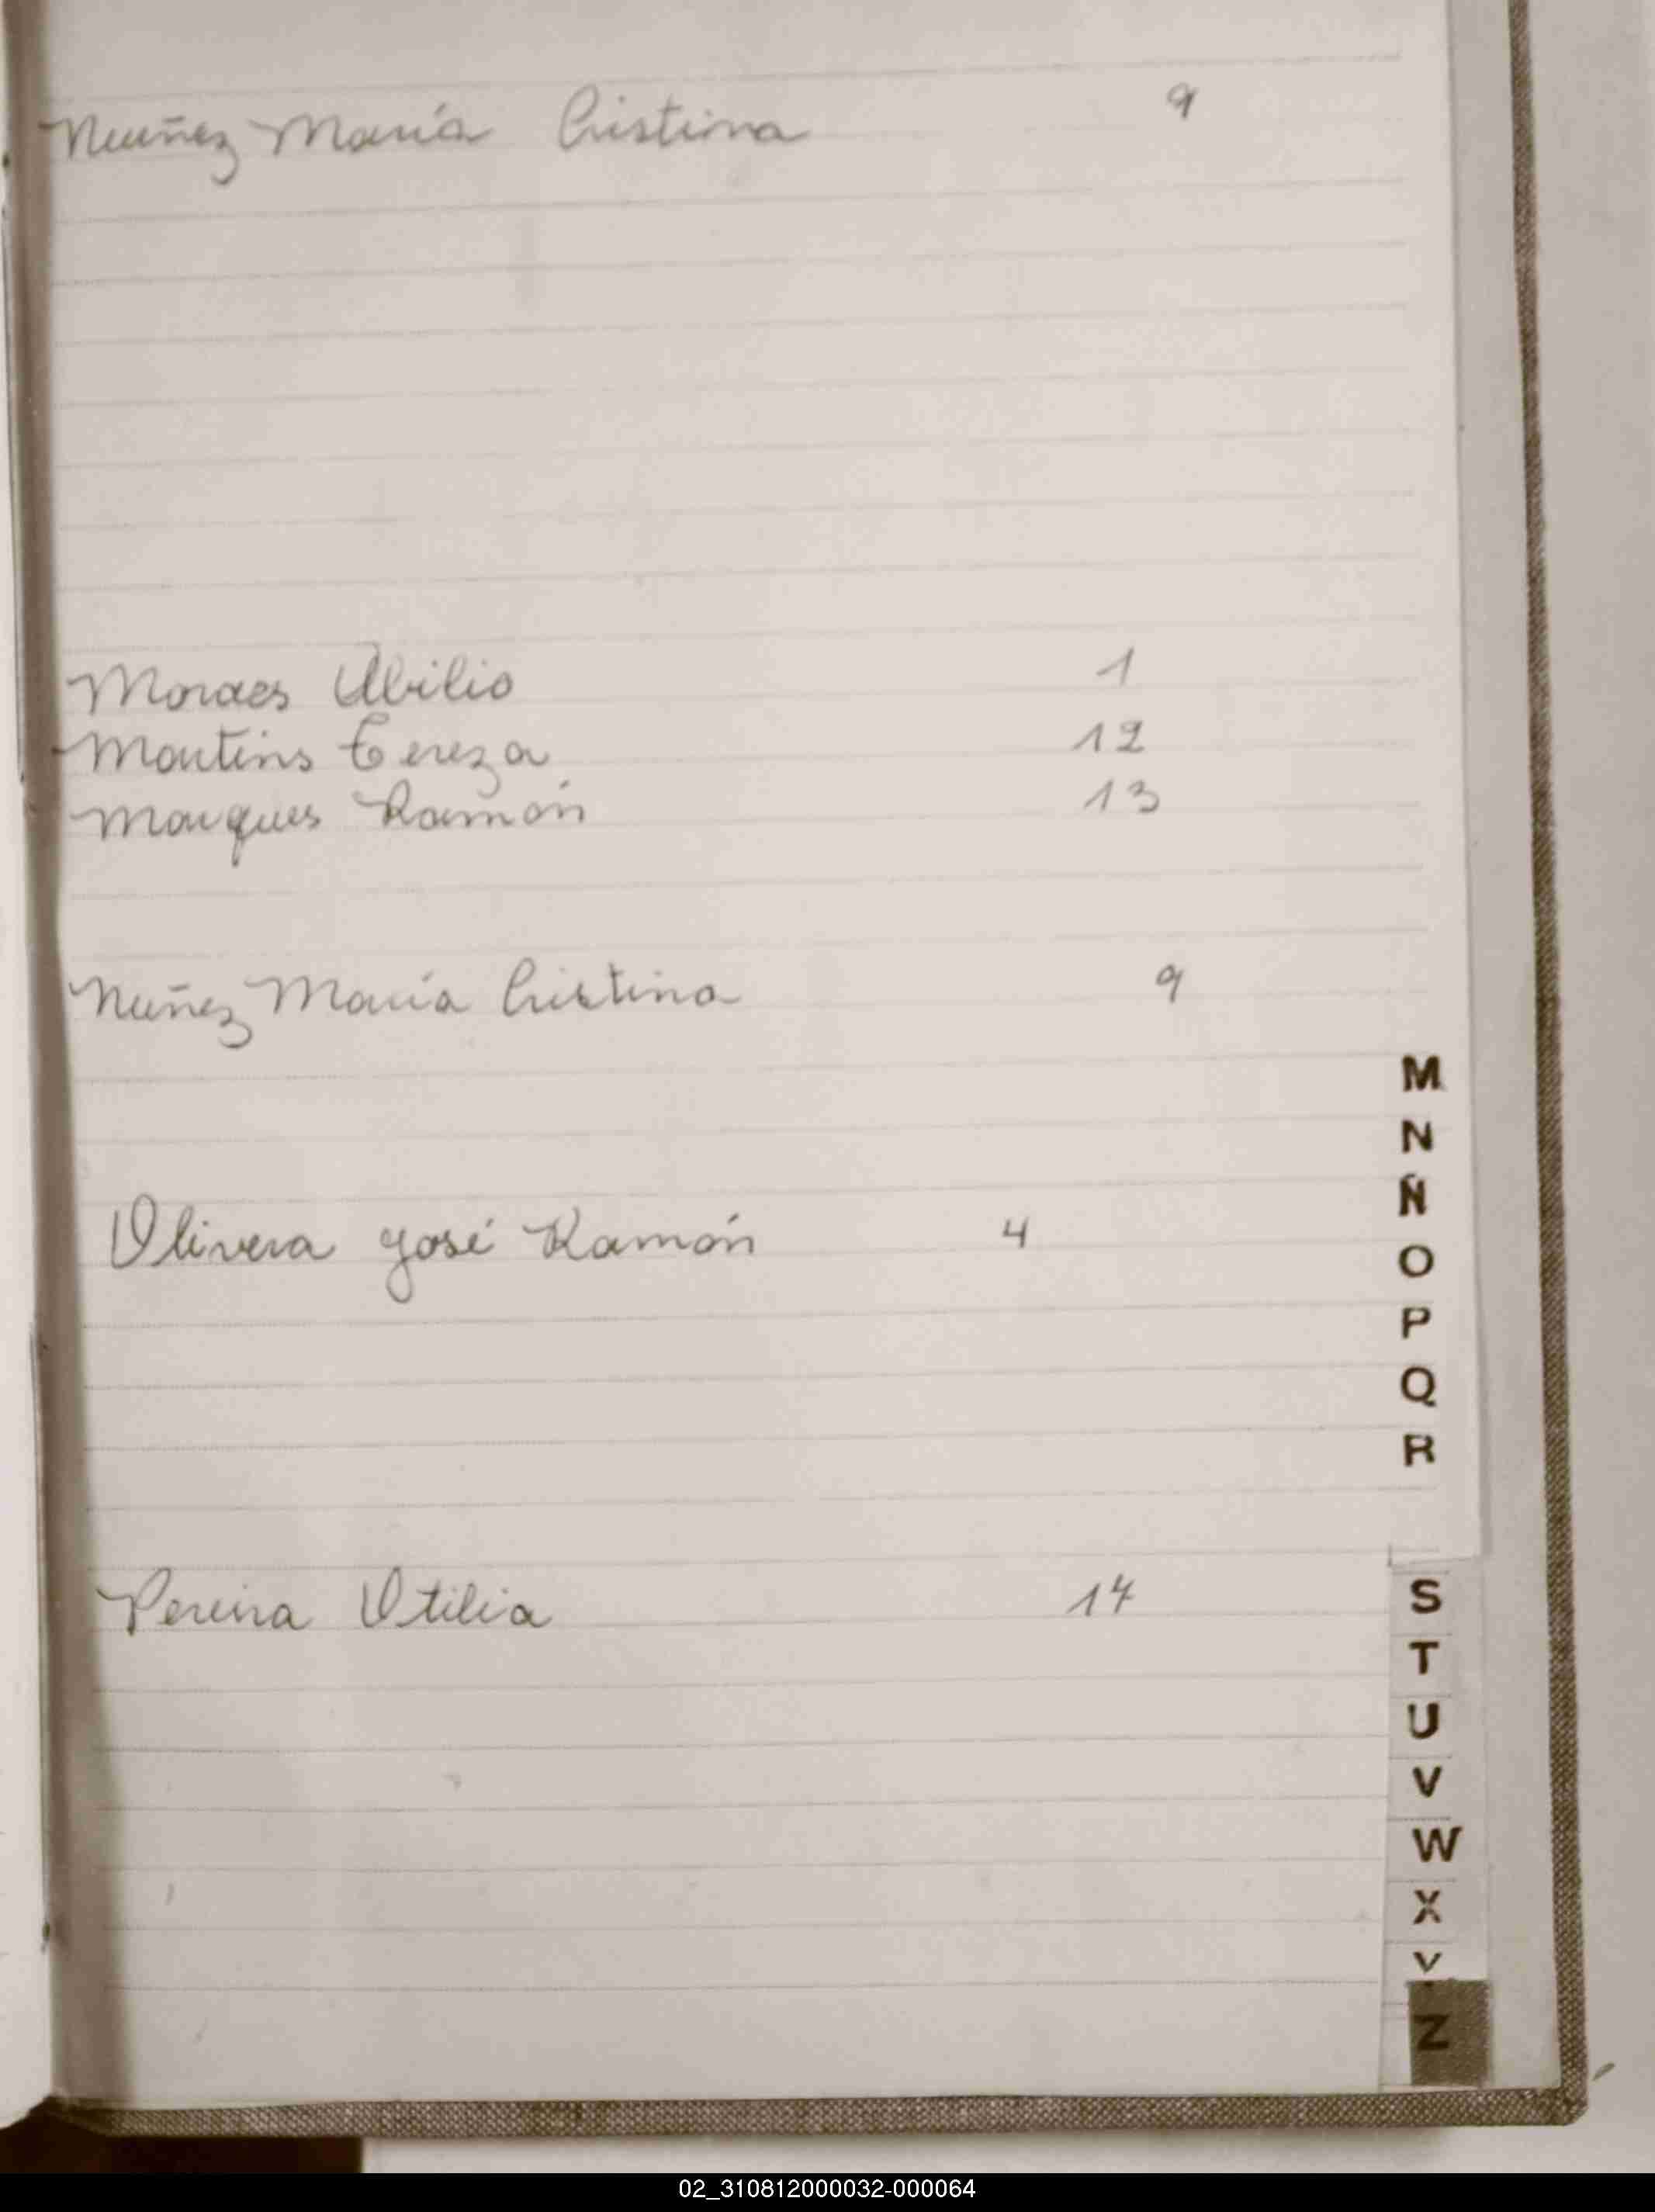 Nuñez María Cristina 9
Moraes Abilio 1
Martins Tereza 12
Marques Ramón 13
Nuñez María Cristina 9
M
N
Ñ
Olivera José Ramón 4
O
P
Q
R
Pereira Otilia 14
S
T
U
V
W
X
Y
Z
02_310812000032-000064